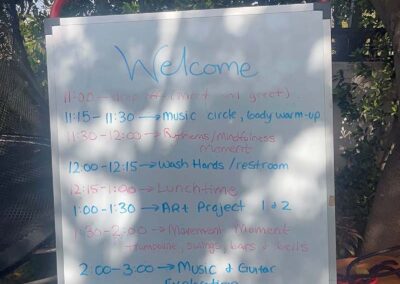 Welcome
11:00 – drop in (meet and greet)
11:15 – 11:30 → Music circle, body warm-up
11:30 – 12:00 → Rythems/Mindfulness
Moment
12:00 – 12:15 → Wash Hands / restroom
12:15 – 1:00 → Lunchtime
1:00 – 1:30 → ARt Project 1 & 2
1:30 – 2:00 → Movement Moment
swings, bars & bells
2:00 – 3:00 → Music & Guitar